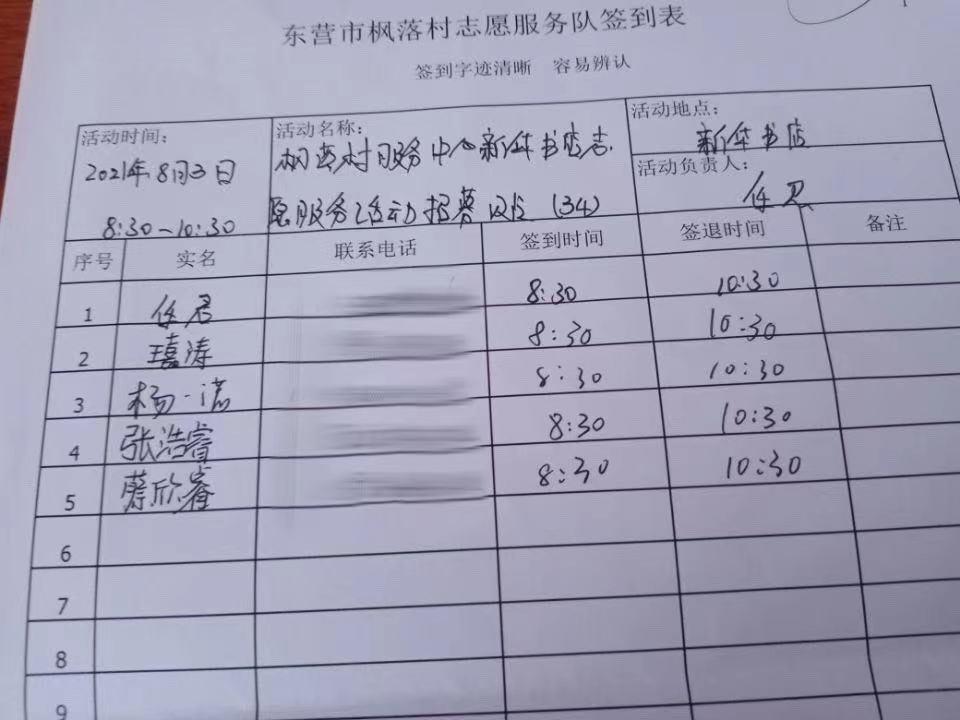 东营市枫落村志愿服务队签到表
签到字迹清晰 容易辨认
活动时间:
2021年8月3日
8:30-10:30
活动名称:
村服务中心新华书店志
愿服务活动招募 (34)
活动地点:
新华书店
活动负责人:
任
序号 实名 联系电话 签到时间 签退时间 备注
1 任君 8:30 10:30
2 涛 8:30 10:30
3 杨一诺 8:30 10:30
4 张浩睿 8:30 10:30
5 蔡欣睿 8:30 10:30
6
7
8
9